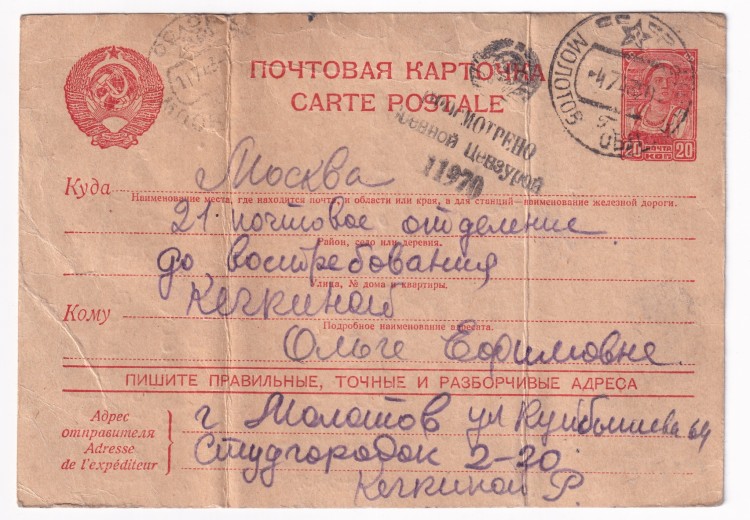 ПОЧТОВАЯ КАРТОЧКА
CARTE POSTALE
ПРОСМОТРЕНО
Военной Цензурой
11970
МОЛОТОВ
ПОЧТА
20 КОП 20
Куда Москва
Наименование места, где находится почта, и области или края, а для станций—наименование железной дороги.
21. почтовое отделение
Район, село или деревня.
до востребования
Улица, № дома и квартиры.
Кому Кечкиной
Подробное наименование адресата.
Ольге Ефимовне.
ПИШИТЕ ПРАВИЛЬНЫЕ, ТОЧНЫЕ И РАЗБОРЧИВЫЕ АДРЕСА
Адрес отправителя
Adresse de l'expéditeur
г Молотов ул Куйбышева 64
Студгородок 2-20
Кечкиной Р.